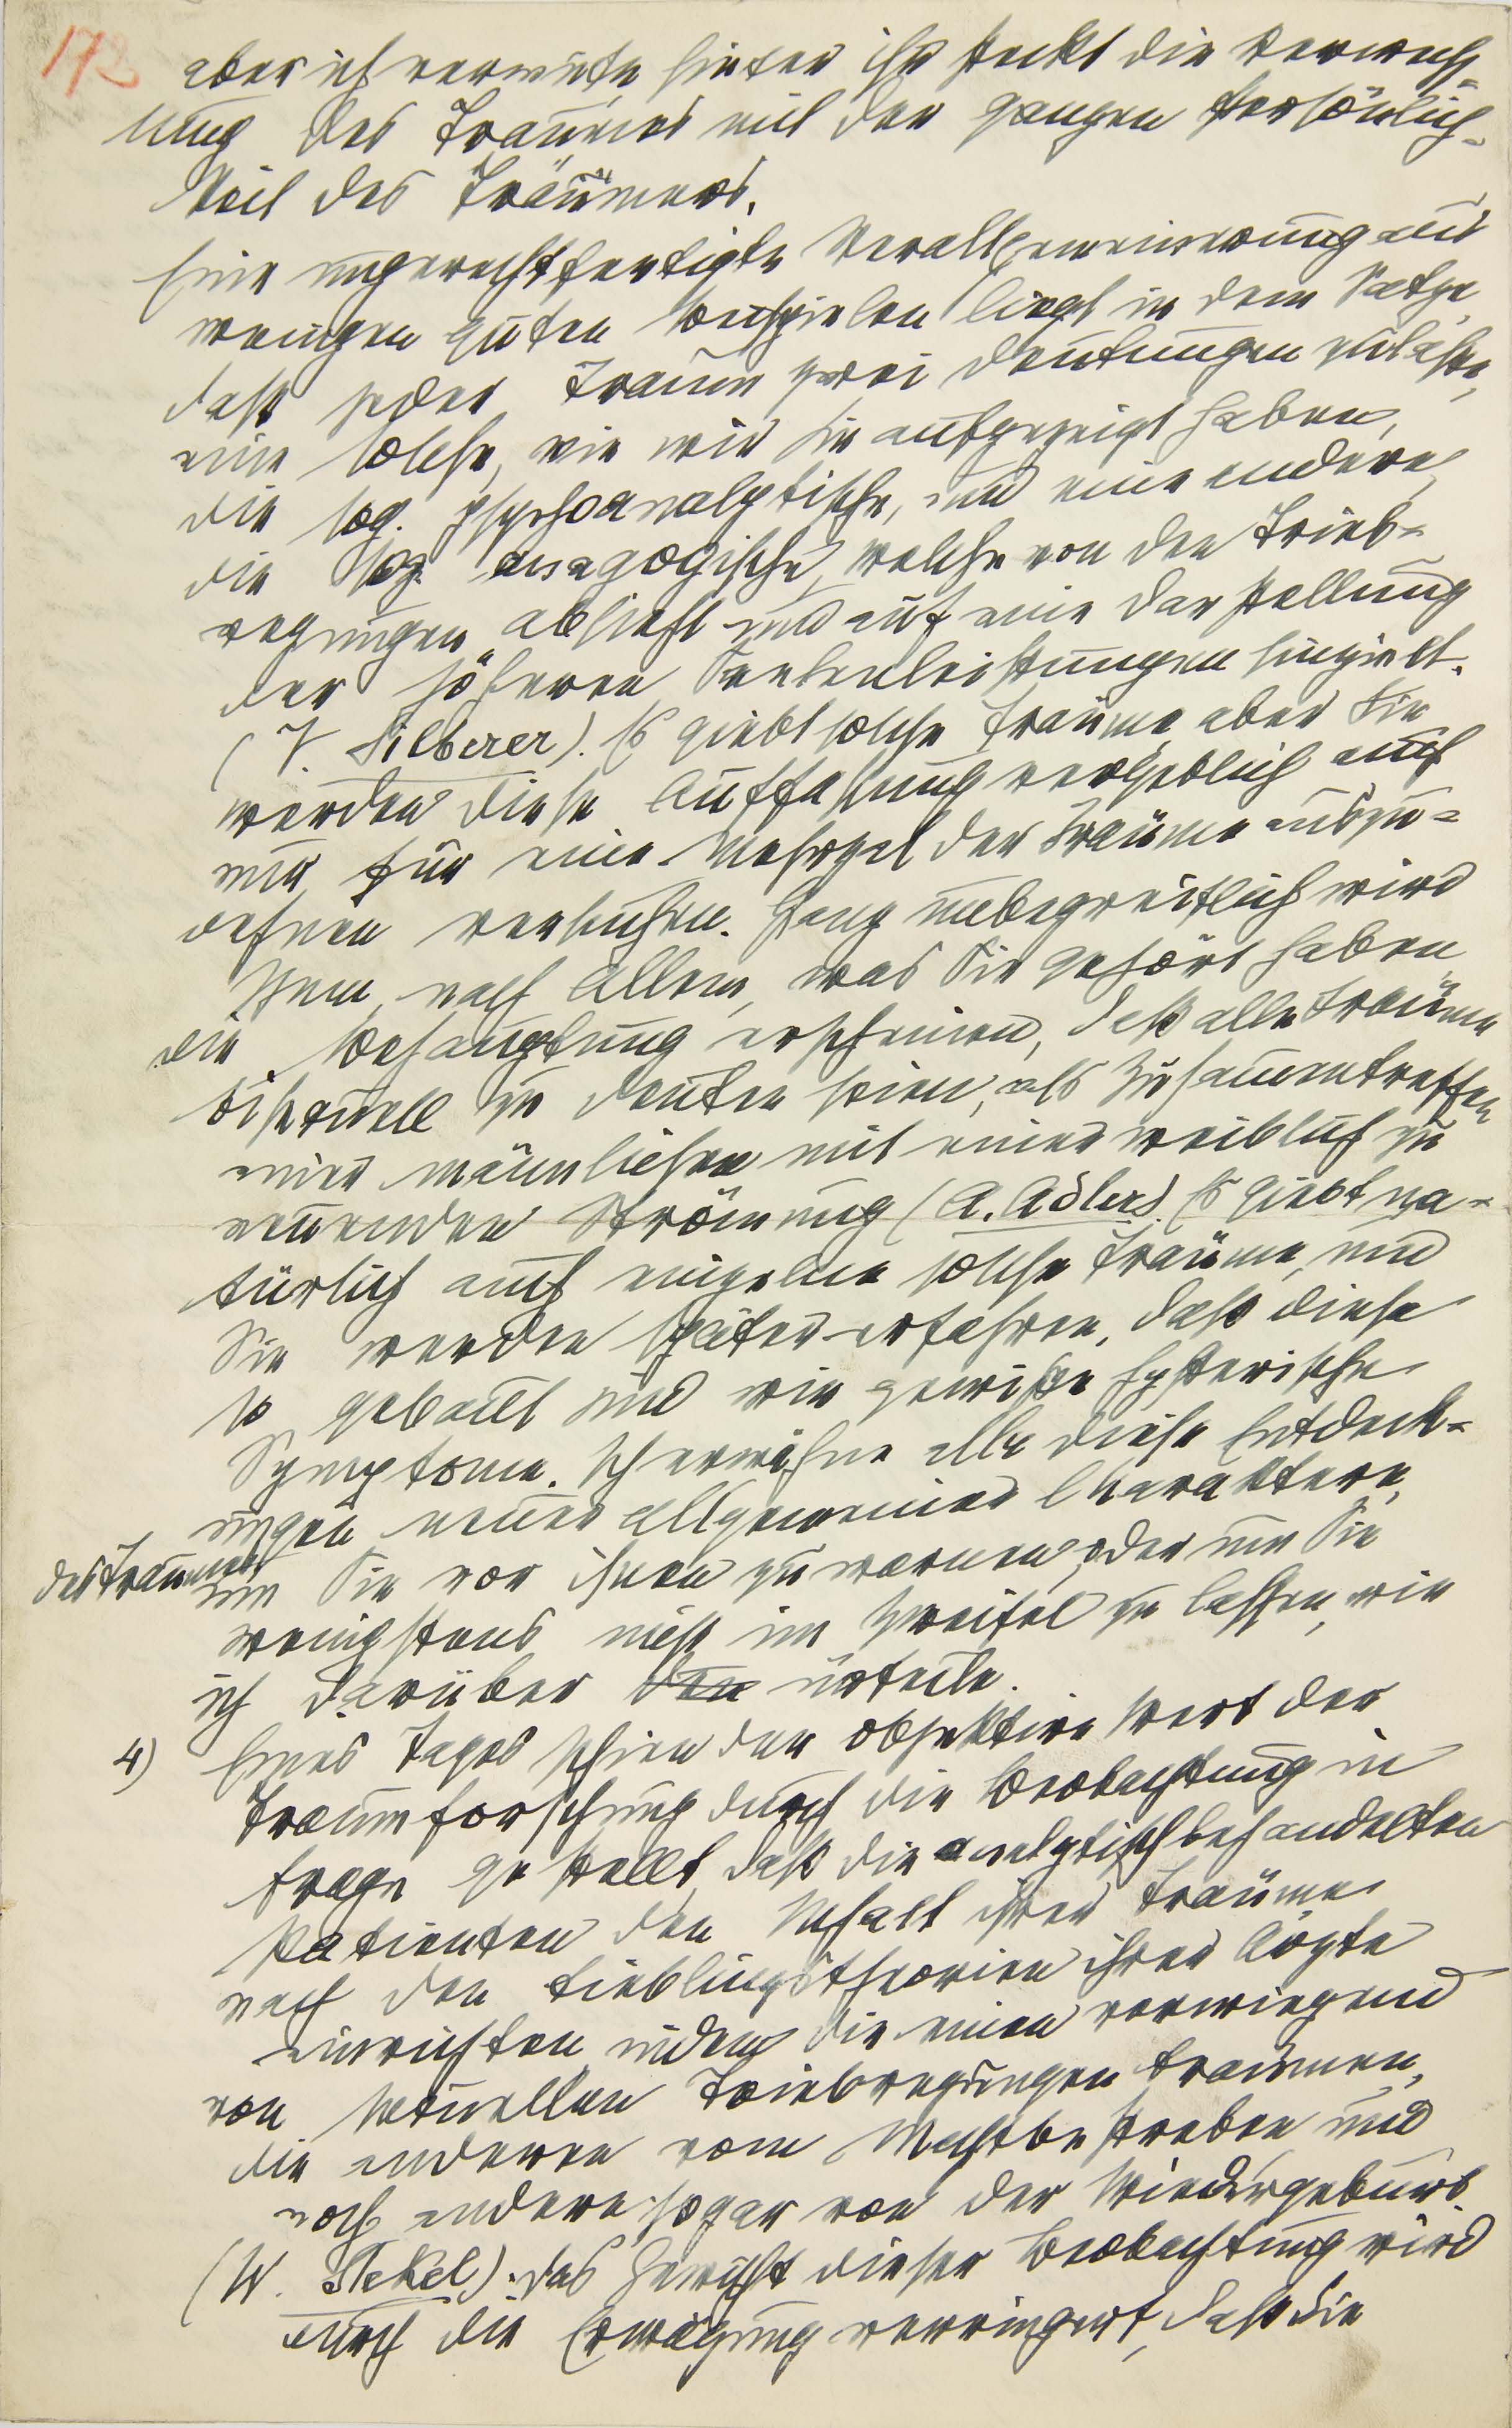 172
aber ich vermute, hinter ihr steckt die Verwechs-
lung des Traumes mit der ganzen Persönlich-
keit des Träumers.
Eine ungerechtfertigte Verallgemeinerung aus
wenigen guten Beispielen liegt in dem Satze,
daß jeder Traum zwei Deutungen zulasse,
eine solche, wie wir sie aufgezeigt haben,
die sog. psychoanalytische, und eine andere,
die sog. anagogische, welche von den Trieb-
regungen absieht und auf eine Darstellung
der höheren Seelenleistungen hinzielt.
(V. Silberer). Es giebt solche Träume, aber Sie
werden diese Auffassung vergeblich auch
nur für eine Mehrzal der Träume auszu-
dehnen versuchen. Ganz unbegreiflich wird
Ihnen, nach Allem, was Sie gehört haben
die Behauptung erscheinen, daß alle Träume
bisexuell zu deuten seien, als Zusammentreffen
einer männlichen mit einer weiblich zu
nennenden Strömung (A. Adler). Es giebt na-
türlich auch einzelne solche Träume, und
Sie werden später erfahren, daß diese
so gebaut sind wie gewisse hysterische
Symptome. Ich erwähne alle diese Entdeck-
ungen neuer allgemeiner Charaktere,
des Traumes um Sie vor ihnen zu warnen, oder um Sie
wenigstens nicht im Zweifel zu lassen, wie
ich darüber den urteile.
4) Eines Tages schien der objektive Wert der
Traumforschung durch die Beobachtung in
Frage gestellt, daß die analytisch behandelten
Patienten den Inhalt ihrer Träume
nach den Lieblingstheorien ihrer Ärzte
einrichten, indem die einen vorwiegend
von sexuellen Triebregungen träumen,
die anderen vom Machtbestreben und
noch andere sogar von der Wiedergeburt
(W. Stekel). Das Gewicht dieser Beobachtung wird
durch die Erwägung verringert, daß die